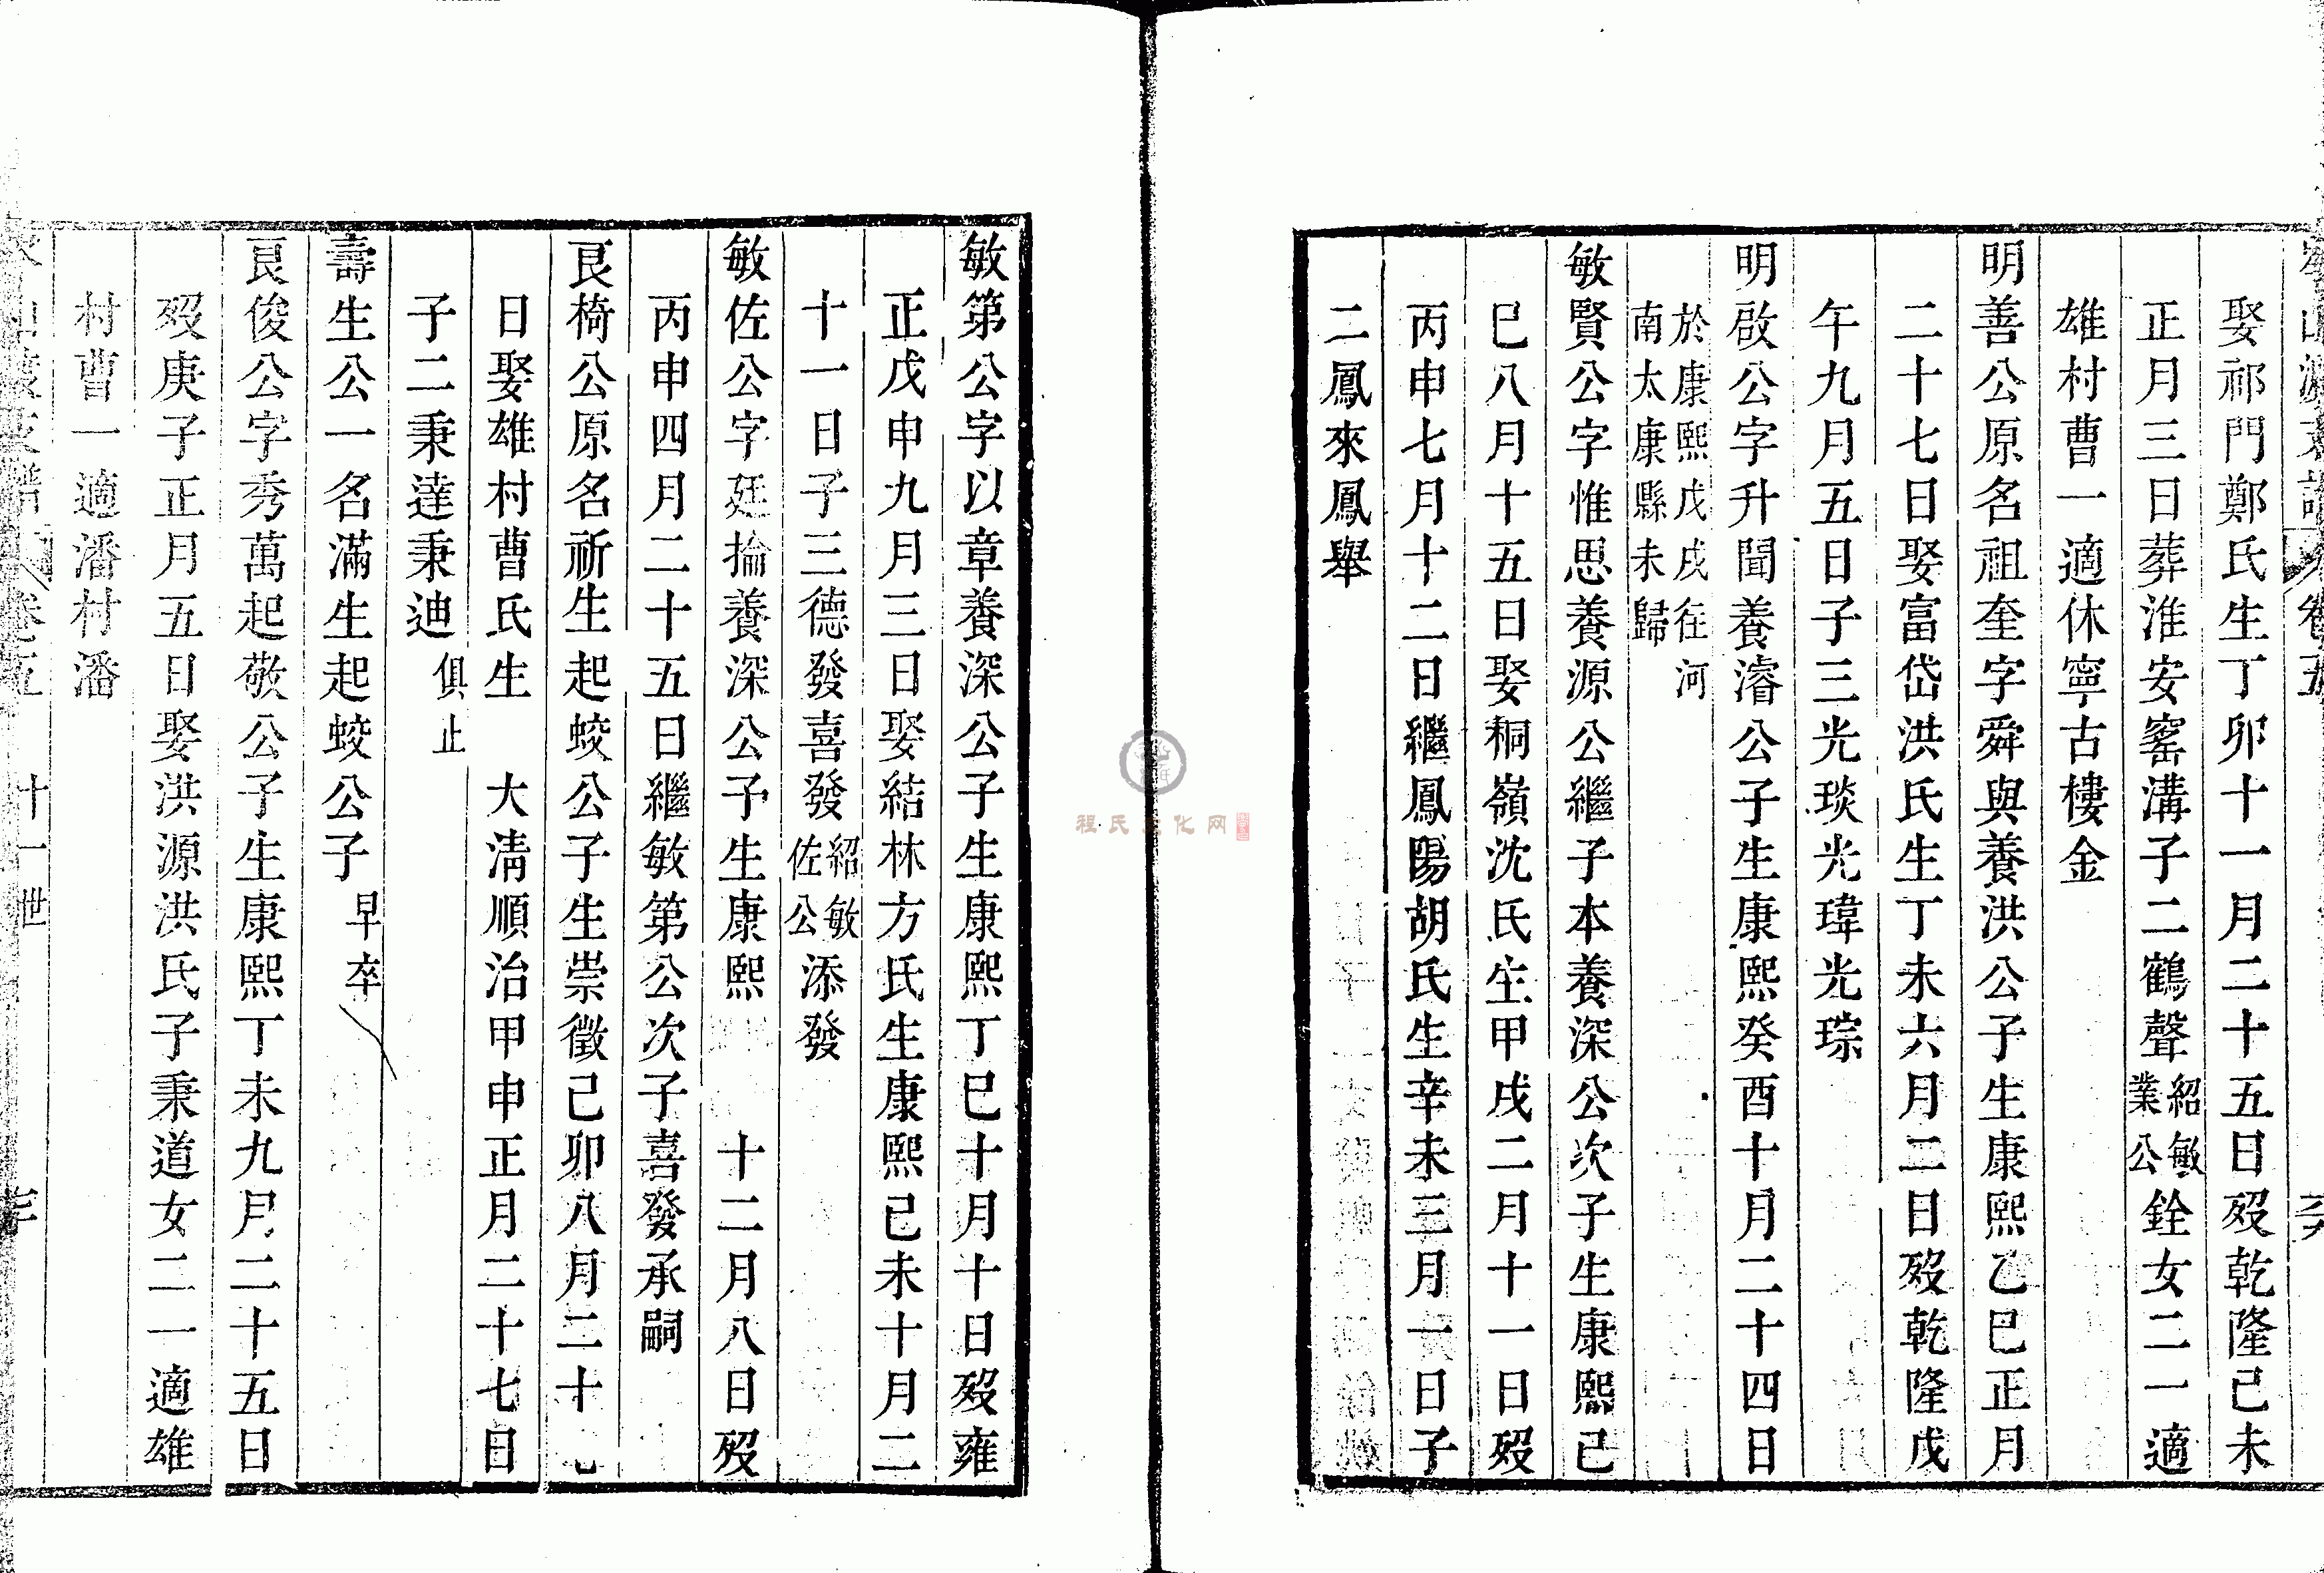 娶祁門鄭氏生丁卯十一月二十五日歿乾隆己未
正月三日葬淮安窰溝子二鶴聲紹敏業公銓女二一適
雄村曹一適休寧古樓金
明善公原名祖奎字舜與養洪公子生康熙乙巳正月
二十七日娶富岱洪氏生丁未六月二日歿乾隆戊
午九月五日子三光琰光瑋光琮
明啟公字升聞養濬公子生康熙癸酉十月二十四日
於康熙戊戌往河
南太康縣未歸
敏賢公字惟思養源公繼子本養深公次子生康熙己
巳八月十五日娶秱嶺沈氏生甲戌二月十一日歿
丙申七月十二日繼鳳陽胡氏生辛未三月一日子
二鳳來鳳舉
敏第公字以章養深公子生康熙丁巳十月十日歿雍
正戊申九月三日娶結林方氏生康熙己未十月二
十一日子三德發喜發紹敏佐公添發
敏佐公字廷掄養深公子生康熙 十二月八日歿
丙申四月二十五日繼敏第公次子喜發承嗣
艮椅公原名祈生起蛟公子生崇徵己卯八月二十
日娶雄村曹氏生 大清順治甲申正月二十七日
子二秉達秉迪俱止
壽生公一名滿生起蛟公子早卒
艮俊公字秀萬起敬公子生康熙丁未九月二十五日
歿庚子正月五日娶洪源洪氏子秉道女二一適雄
村曹一適潘村潘
十一世